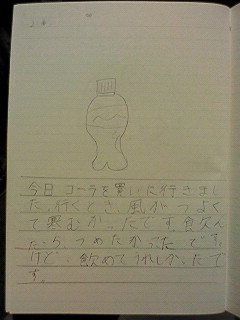 今日コーラを買いに行きまし
た。行くとき、風がつよく
て寒むかったです。飲んん
だら、つめたかったです。
けど、飲めてうれしかったで
す。